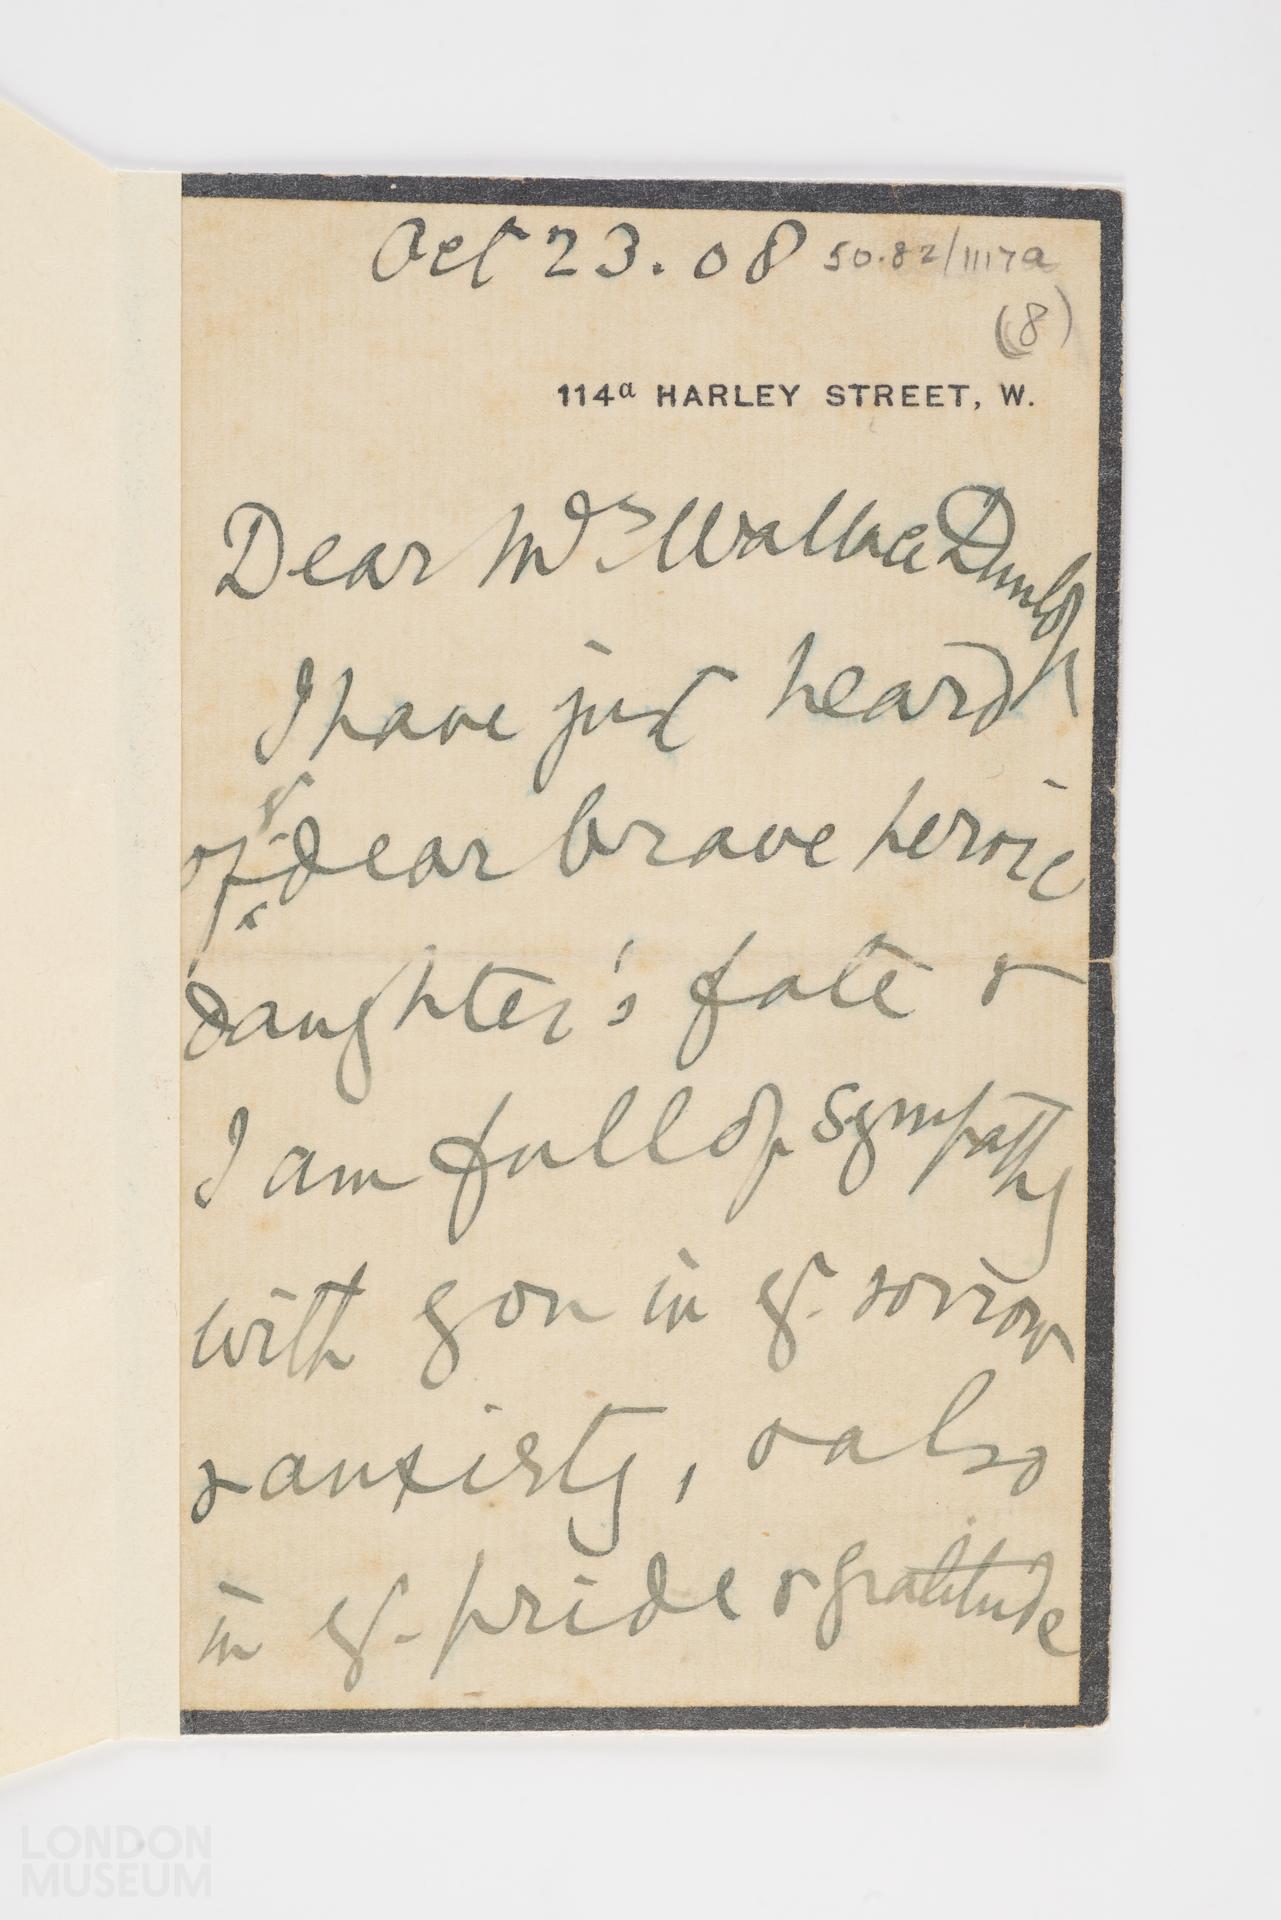 Oct 23. 08 50.82/1117a
(8)
114a HARLEY STREET, W.
Dear Mrs Wallace Dunlop
I have just heard
of yr. dear brave heroic
daughter's fate &
I am full of sympathy
with you in yr. sorrow
& anxiety, & also
in yr. pride & gratitude
LONDON
MUSEUM